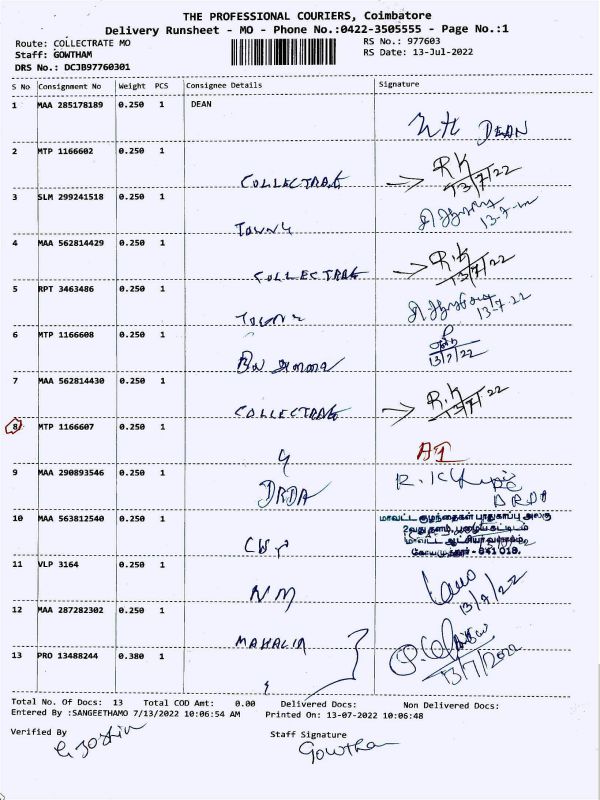 THE PROFESSIONAL COURIERS, Coimbatore
Delivery Runsheet - MO - Phone No.:0422-3505555 - Page No.:1
Route: COLLECTRATE MO
RS No.: 977603
Staff: GOWTHAM
RS Date: 13-Jul-2022
DRS No.: DCJB97760301
S No Consignment No Weight PCS Consignee Details Signature
1 MAA 285178189 0.250 1 DEAN
DEAN
2 MTP 1166602 0.250 1
COLLECTRATE RK 13/7/22
3 SLM 299241518 0.250 1
13-7-22
4 MAA 562814429 0.250 1
COLLECTRATE R.K 13/7/22
5 RPT 3463486 0.250 1
13-7-22
6 MTP 1166608 0.250 1
13/7/22
7 MAA 562814430 0.250 1
COLLECTRATE R.K 13/7/22
8 MTP 1166607 0.250 1
9 MAA 290893546 0.250 1
DRDA DRDA
10 MAA 563812540 0.250 1
மாவட்ட குழந்தைகள் பாதுகாப்பு அலகு
2வது தளம், பழைய கட்டிடம்
மாவட்ட ஆட்சியர் வளாகம்
கோயமுத்தூர் - 641 018.
11 VLP 3164 0.250 1
NM 13/7/22
12 MAA 287282302 0.250 1
13 PRO 13488244 0.380 1
13/7/2022
Total No. Of Docs: 13 Total COD Amt: 0.00 Delivered Docs: Non Delivered Docs:
Entered By :SANGEETHAMO 7/13/2022 10:06:54 AM Printed On: 13-07-2022 10:06:48
Verified By Staff Signature
Gowtham